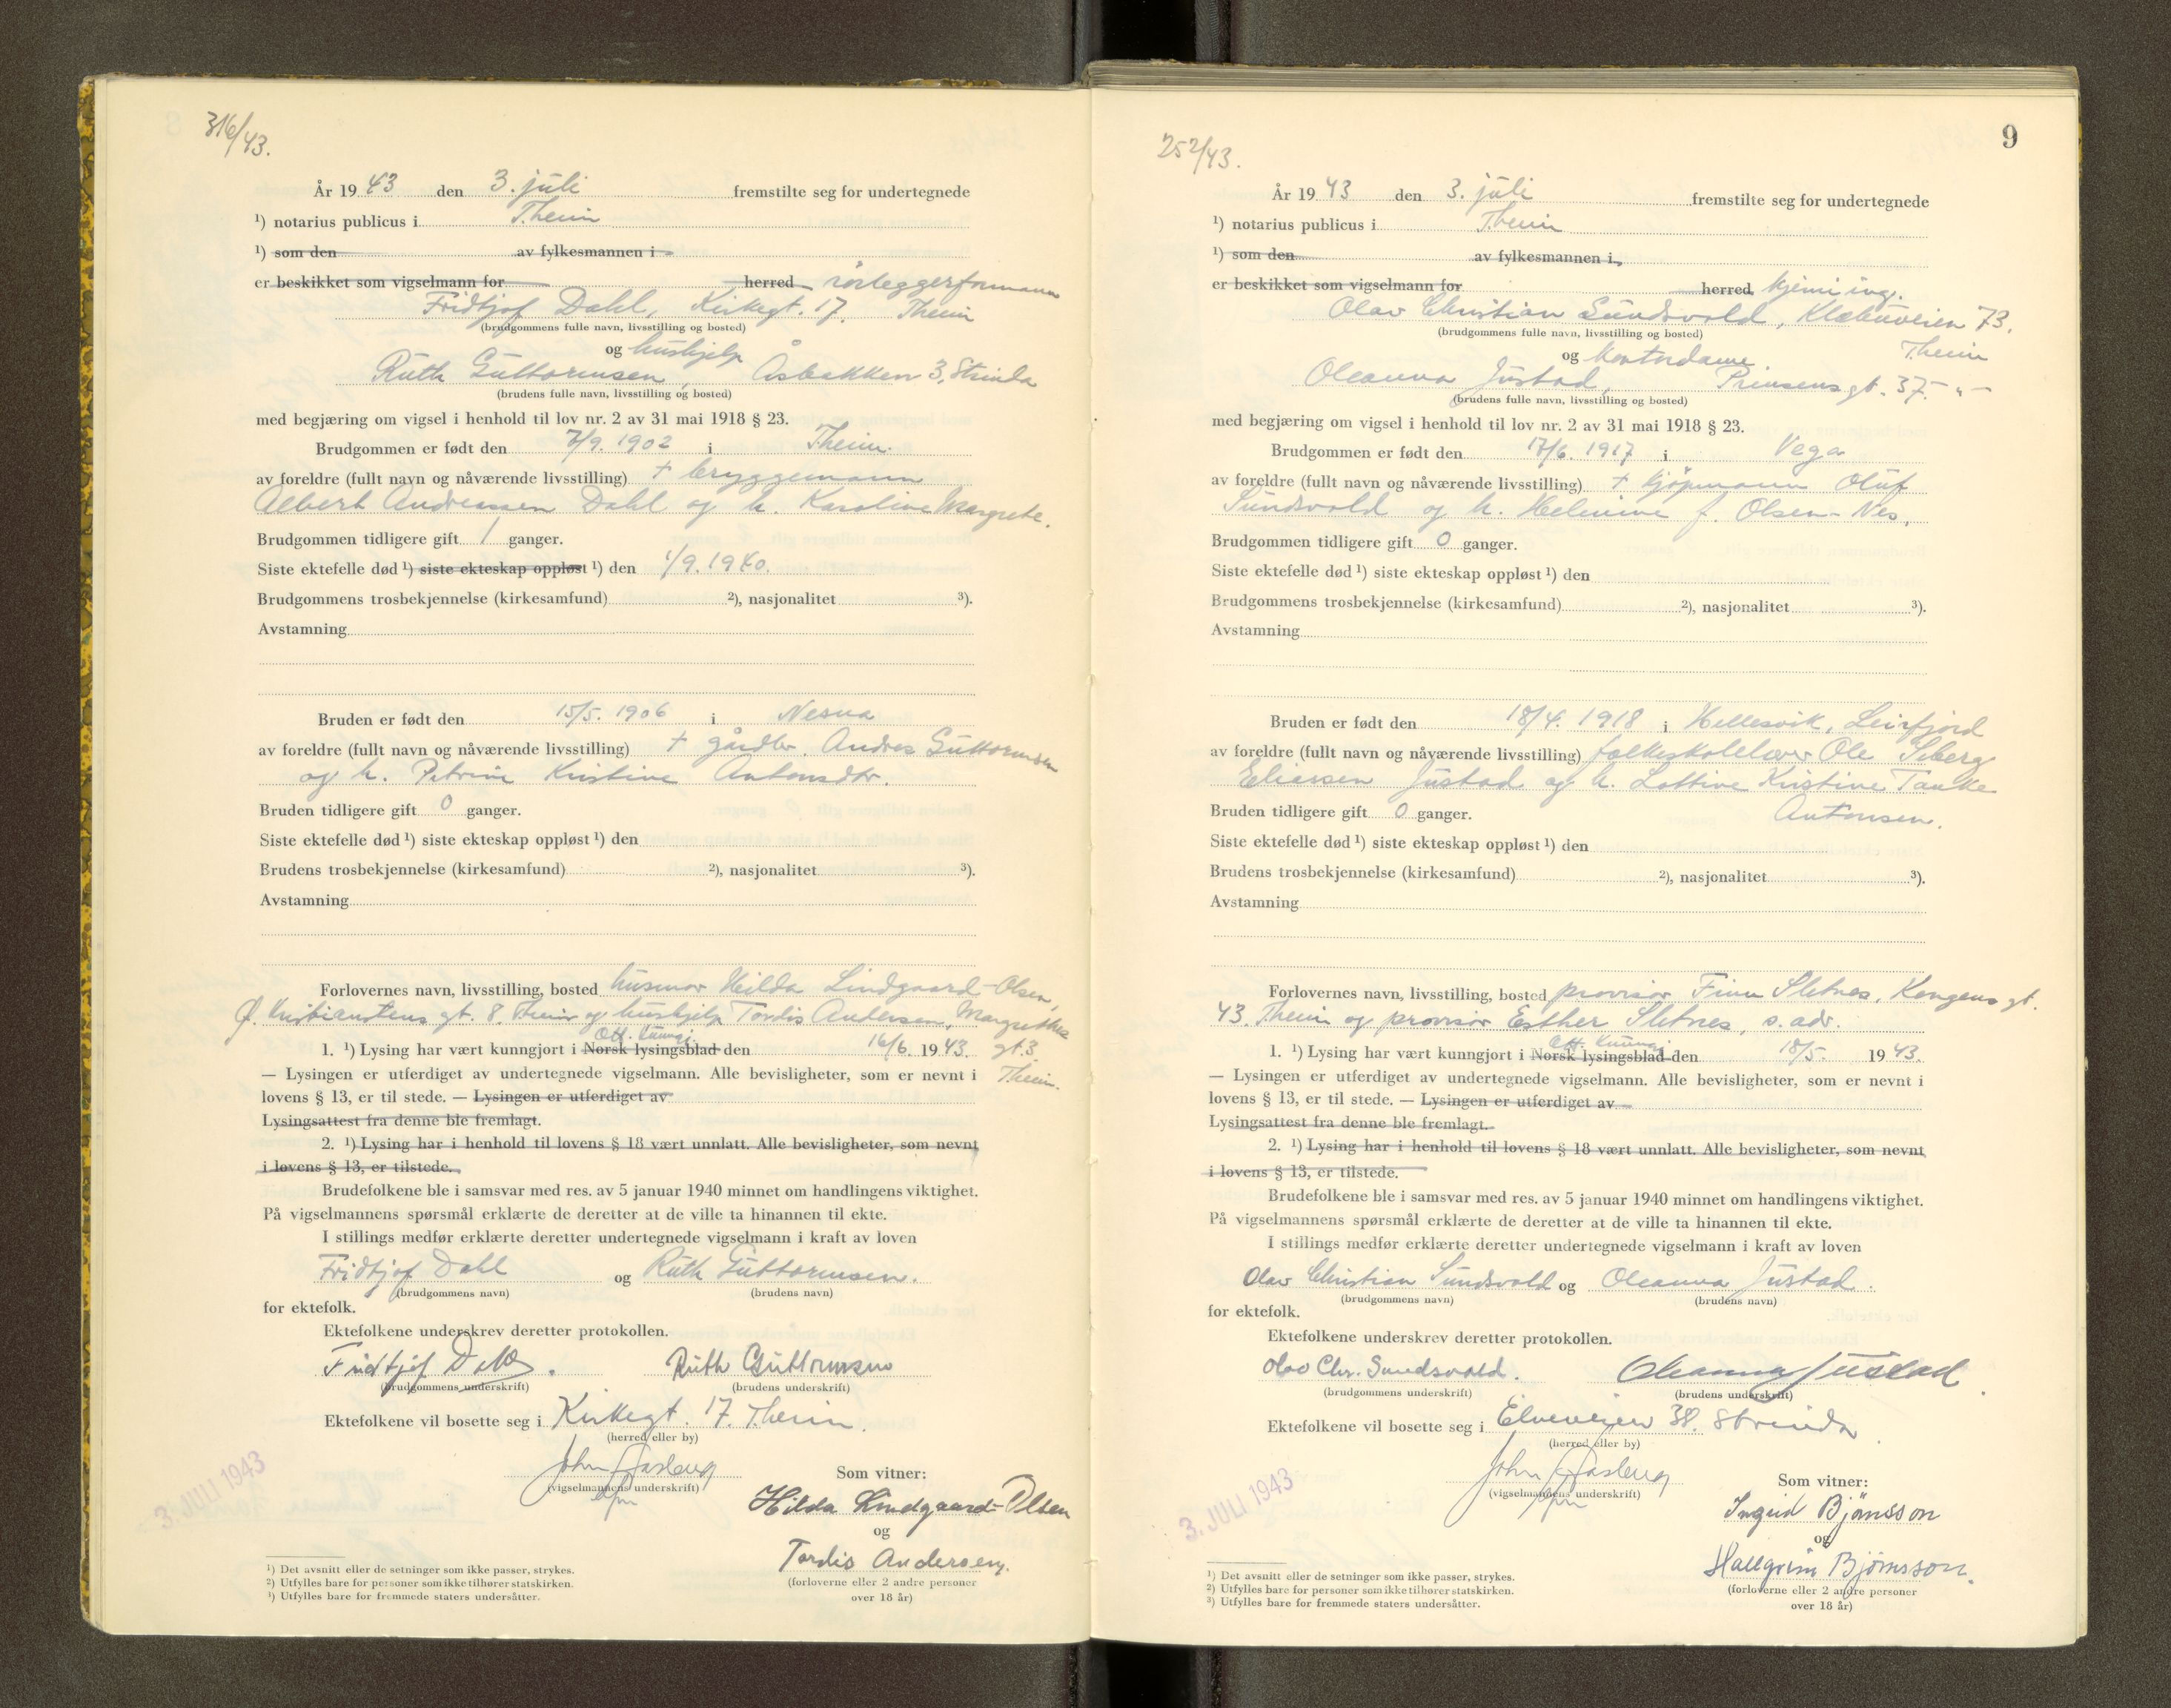 316/43.
År 1943 den 3. juli fremstilte seg for undertegnede
¹) notarius publicus i T.heim
¹) som den av fylkesmannen i
er beskikket som vigselmann for herred rørleggerformann
Fridtjof Dahl, Kirkegt. 17. Theim
(brudgommens fulle navn, livsstilling og bosted)
og hushjelp
Ruth Guttormsen, Åsbakken 3, Strinda
(brudens fulle navn, livsstilling og bosted)
med begjæring om vigsel i henhold til lov nr. 2 av 31 mai 1918 § 23.
Brudgommen er født den 7/9. 1902 i Theim.
av foreldre (fullt navn og nåværende livsstilling) + bryggemann
Albert Andreassen Dahl og h. Karoline Margrete.
Brudgommen tidligere gift 1 ganger.
Siste ektefelle død ¹) siste ekteskap oppløst ¹) den 1/9. 1940.
Brudgommens trosbekjennelse (kirkesamfund) ²), nasjonalitet ³).
Avstamning
Bruden er født den 15/5. 1906 i Nesna
av foreldre (fullt navn og nåværende livsstilling) + gårdbr. Andreas Guttormsen
og h. Petrine Kristine Antonsdtr.
Bruden tidligere gift 0 ganger.
Siste ektefelle død ¹) siste ekteskap oppløst ¹) den
Brudens trosbekjennelse (kirkesamfund) ²), nasjonalitet ³).
Avstamning
Forlovernes navn, livsstilling, bosted husmor Hilda Lindgaard-Olsen,
Ø. Kristianstens gt. 8. Theim og hushjelp Tordis Andersen, Margrethes
gt. 3. Theim.
Off. kunngj.
1. ¹) Lysing har vært kunngjort i Norsk lysingsblad den 16/6. 1943.
— Lysingen er utferdiget av undertegnede vigselmann. Alle bevisligheter, som er nevnt i
lovens § 13, er til stede. — Lysingen er utferdiget av
Lysingsattest fra denne ble fremlagt.
2. ¹) Lysing har i henhold til lovens § 18 vært unnlatt. Alle bevisligheter, som nevnt
i lovens § 13, er tilstede.
Brudefolkene ble i samsvar med res. av 5 januar 1940 minnet om handlingens viktighet.
På vigselmannens spørsmål erklærte de deretter at de ville ta hinannen til ekte.
I stillings medfør erklærte deretter undertegnede vigselmann i kraft av loven
Fridtjof Dahl og Ruth Guttormsen.
(brudgommens navn) (brudens navn)
for ektefolk.
Ektefolkene underskrev deretter protokollen.
Fridtjof Dahl. Ruth Guttormsen
(brudgommens underskrift) (brudens underskrift)
Ektefolkene vil bosette seg i Kirkegt. 17. Theim.
(herred eller by)
(vigselmannens underskrift)
3. JULI 1943
Som vitner:
Hilda Lindgaard-Olsen
og
Tordis Andersen.
(forloverne eller 2 andre personer
over 18 år)
¹) Det avsnitt eller de setninger som ikke passer, strykes.
²) Utfylles bare for personer som ikke tilhører statskirken.
³) Utfylles bare for fremmede staters undersåtter.
9
252/43.
År 1943 den 3. juli fremstilte seg for undertegnede
¹) notarius publicus i T.heim
¹) som den av fylkesmannen i
er beskikket som vigselmann for herred kjemiing.
Olav Christian Sundsvold, Klæbuveien 73,
Theim
(brudgommens fulle navn, livsstilling og bosted)
og kontordame
Oleanna Justad, Prinsensgt. 37. - " -
(brudens fulle navn, livsstilling og bosted)
med begjæring om vigsel i henhold til lov nr. 2 av 31 mai 1918 § 23.
Brudgommen er født den 17/6. 1917 i Vega
av foreldre (fullt navn og nåværende livsstilling) + kjøpmann Oluf
Sundsvold og h. Helmine f. Olsen-Nes.
Brudgommen tidligere gift 0 ganger.
Siste ektefelle død ¹) siste ekteskap oppløst ¹) den
Brudgommens trosbekjennelse (kirkesamfund) ²), nasjonalitet ³).
Avstamning
Bruden er født den 18/4. 1918 i Hellesvik, Leirfjord
av foreldre (fullt navn og nåværende livsstilling) folkeskolelærer Ole Seberg
Eliassen Justad og h. Lottine Kristine Tanke
Antonsen.
Bruden tidligere gift 0 ganger.
Siste ektefelle død ¹) siste ekteskap oppløst ¹) den
Brudens trosbekjennelse (kirkesamfund) ²), nasjonalitet ³).
Avstamning
Forlovernes navn, livsstilling, bosted provisor Finn Sletnes, Kongens gt.
43. Theim og provisor Esther Sletnes, s. adr.
Off. kunngj.
1. ¹) Lysing har vært kunngjort i Norsk lysingsblad den 18/5. 1943.
— Lysingen er utferdiget av undertegnede vigselmann. Alle bevisligheter, som er nevnt i
lovens § 13, er til stede. — Lysingen er utferdiget av
Lysingsattest fra denne ble fremlagt.
2. ¹) Lysing har i henhold til lovens § 18 vært unnlatt. Alle bevisligheter, som nevnt
i lovens § 13, er tilstede.
Brudefolkene ble i samsvar med res. av 5 januar 1940 minnet om handlingens viktighet.
På vigselmannens spørsmål erklærte de deretter at de ville ta hinannen til ekte.
I stillings medfør erklærte deretter undertegnede vigselmann i kraft av loven
Olav Christian Sundsvold og Oleanna Justad.
(brudgommens navn) (brudens navn)
for ektefolk.
Ektefolkene underskrev deretter protokollen.
Olav Chr. Sundsvold. Oleanna Justad.
(brudgommens underskrift) (brudens underskrift)
Ektefolkene vil bosette seg i Elveveien 38. Strinda
(herred eller by)
(vigselmannens underskrift)
3. JULI 1943
Som vitner:
Ingrid Björnsson
og
Hallgrim Björnsson.
(forloverne eller 2 andre personer
over 18 år)
¹) Det avsnitt eller de setninger som ikke passer, strykes.
²) Utfylles bare for personer som ikke tilhører statskirken.
³) Utfylles bare for fremmede staters undersåtter.